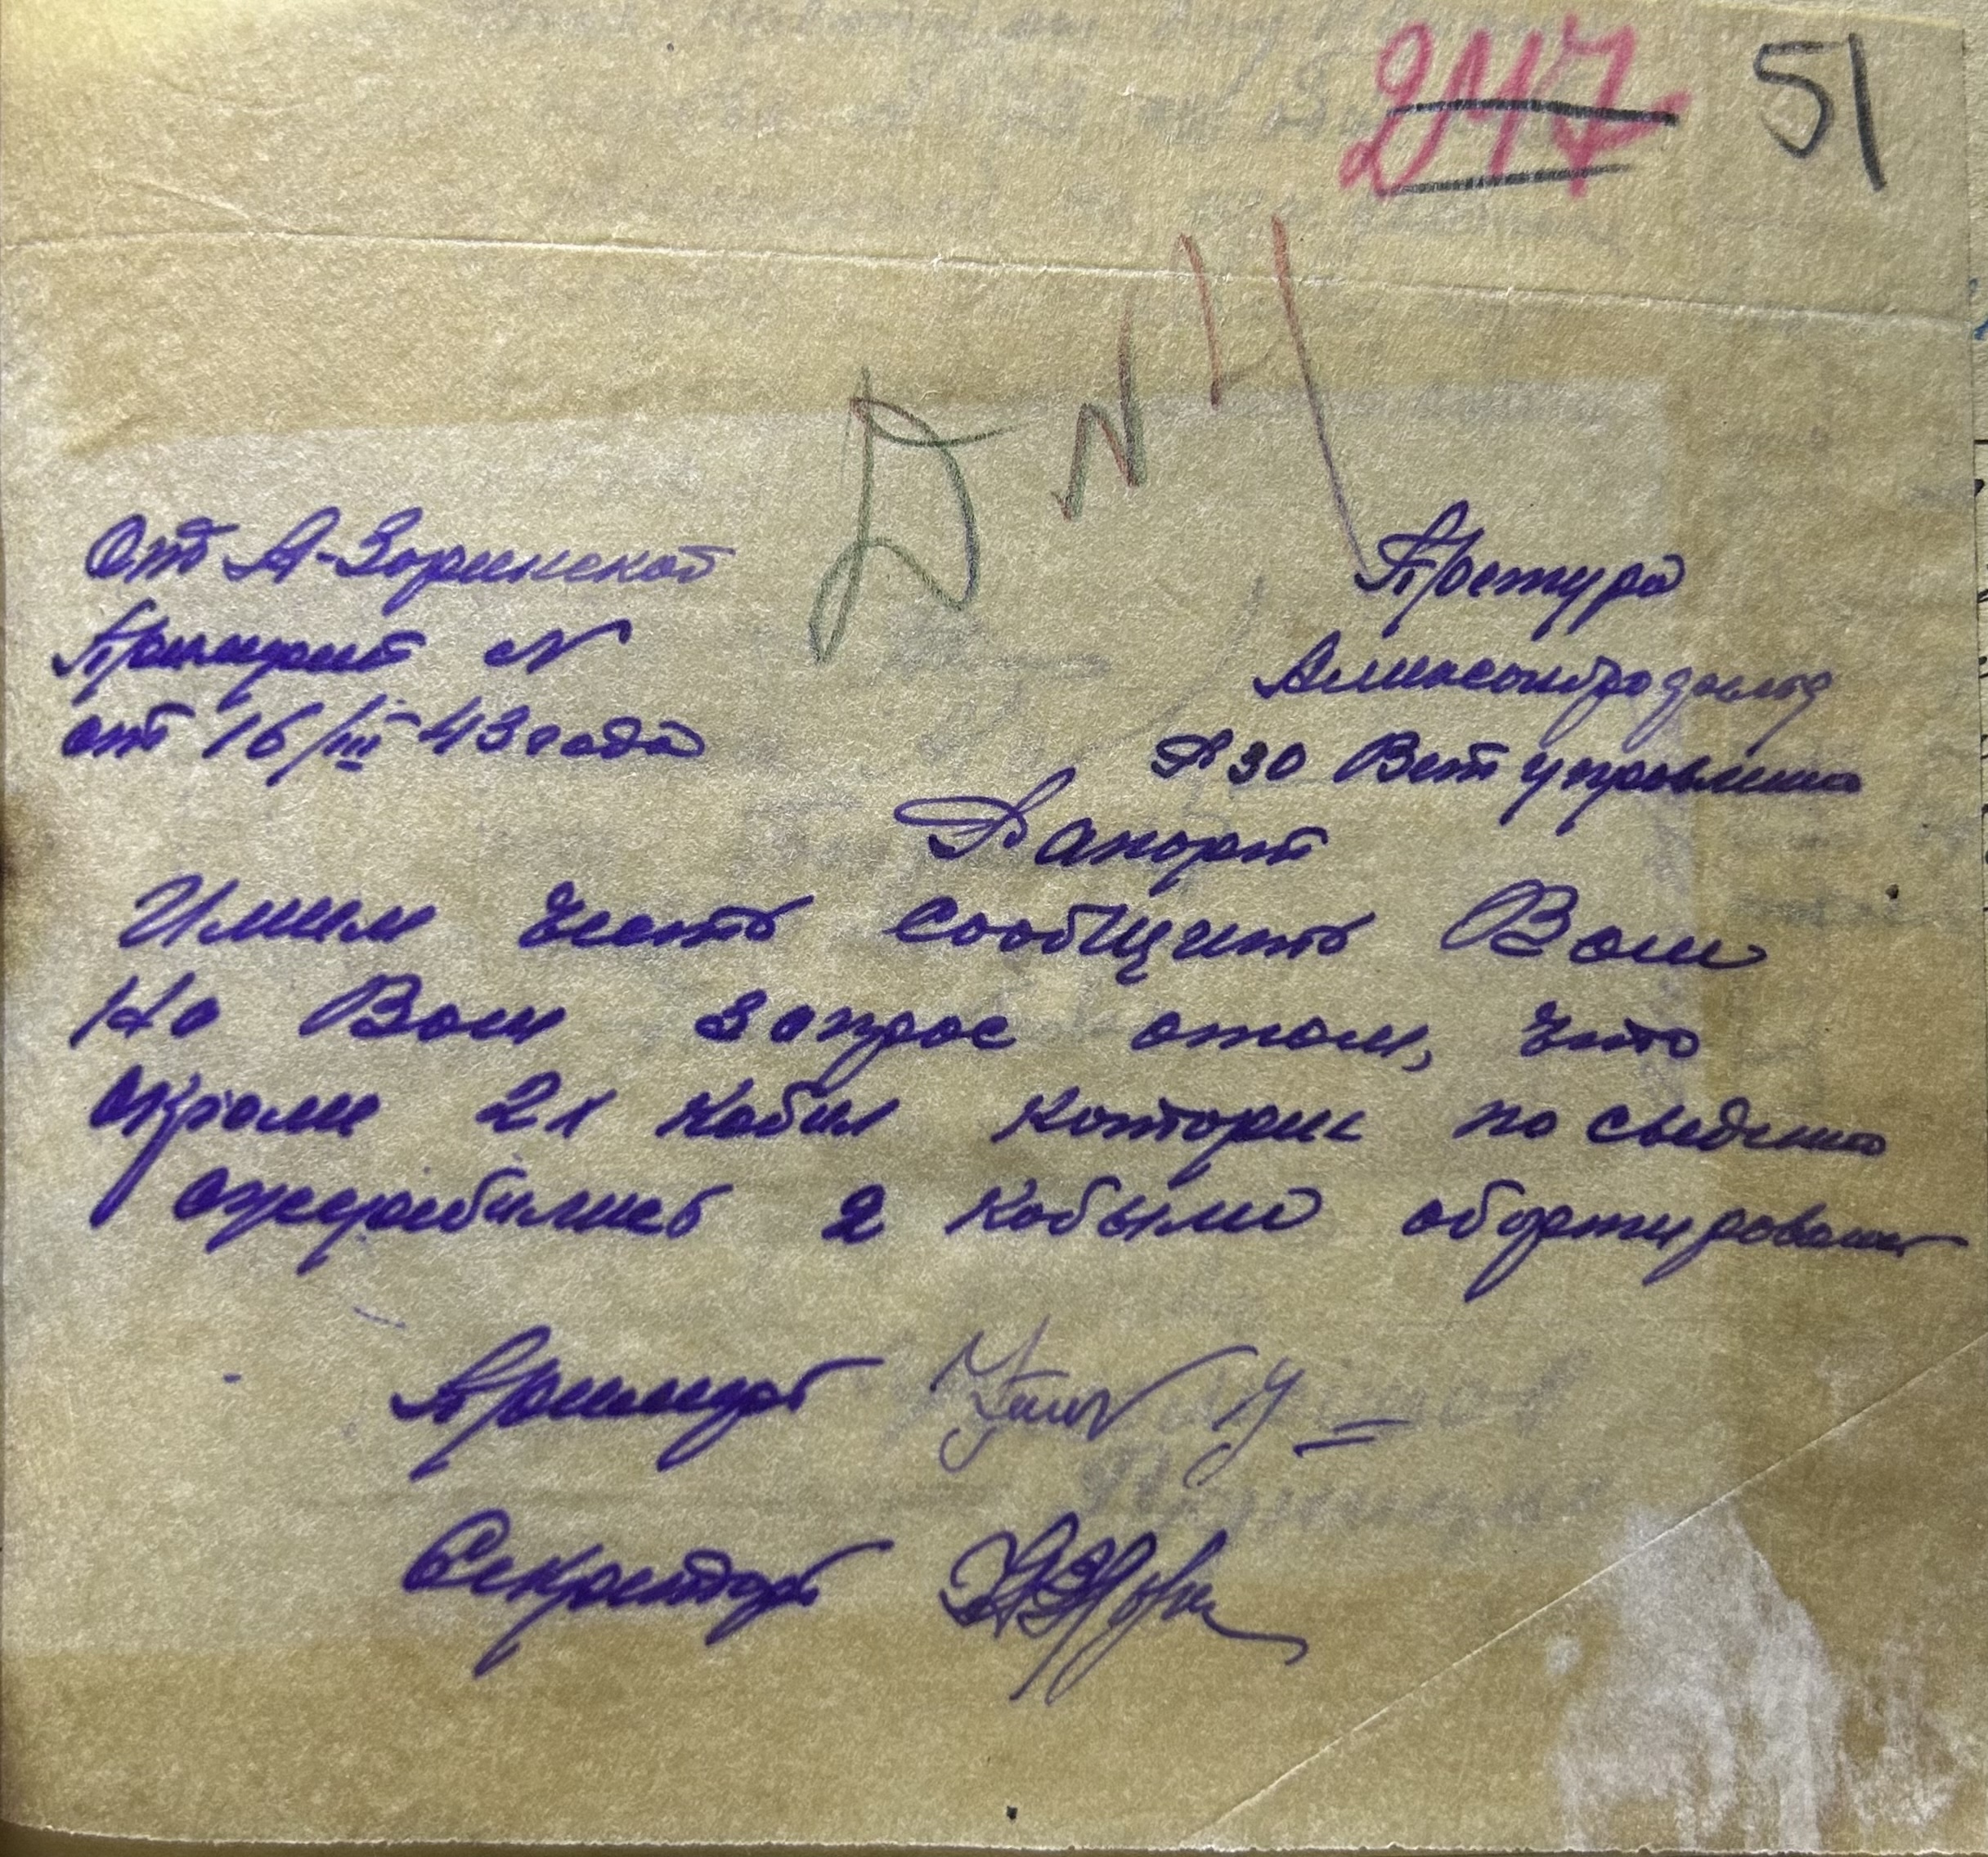 247 51
Д № 4
От А-Зоринской
Примарии №
от 16/III 43 года
Претура
Александродарт
Д 30 Вет управлении
Рапорт
Имеем честь сообщить Вам
На Ваш запрос отом, что
окроме 2х кобил которые по сведению
ожеребились 2 кобыли обортировали
Примарь
Секретарь